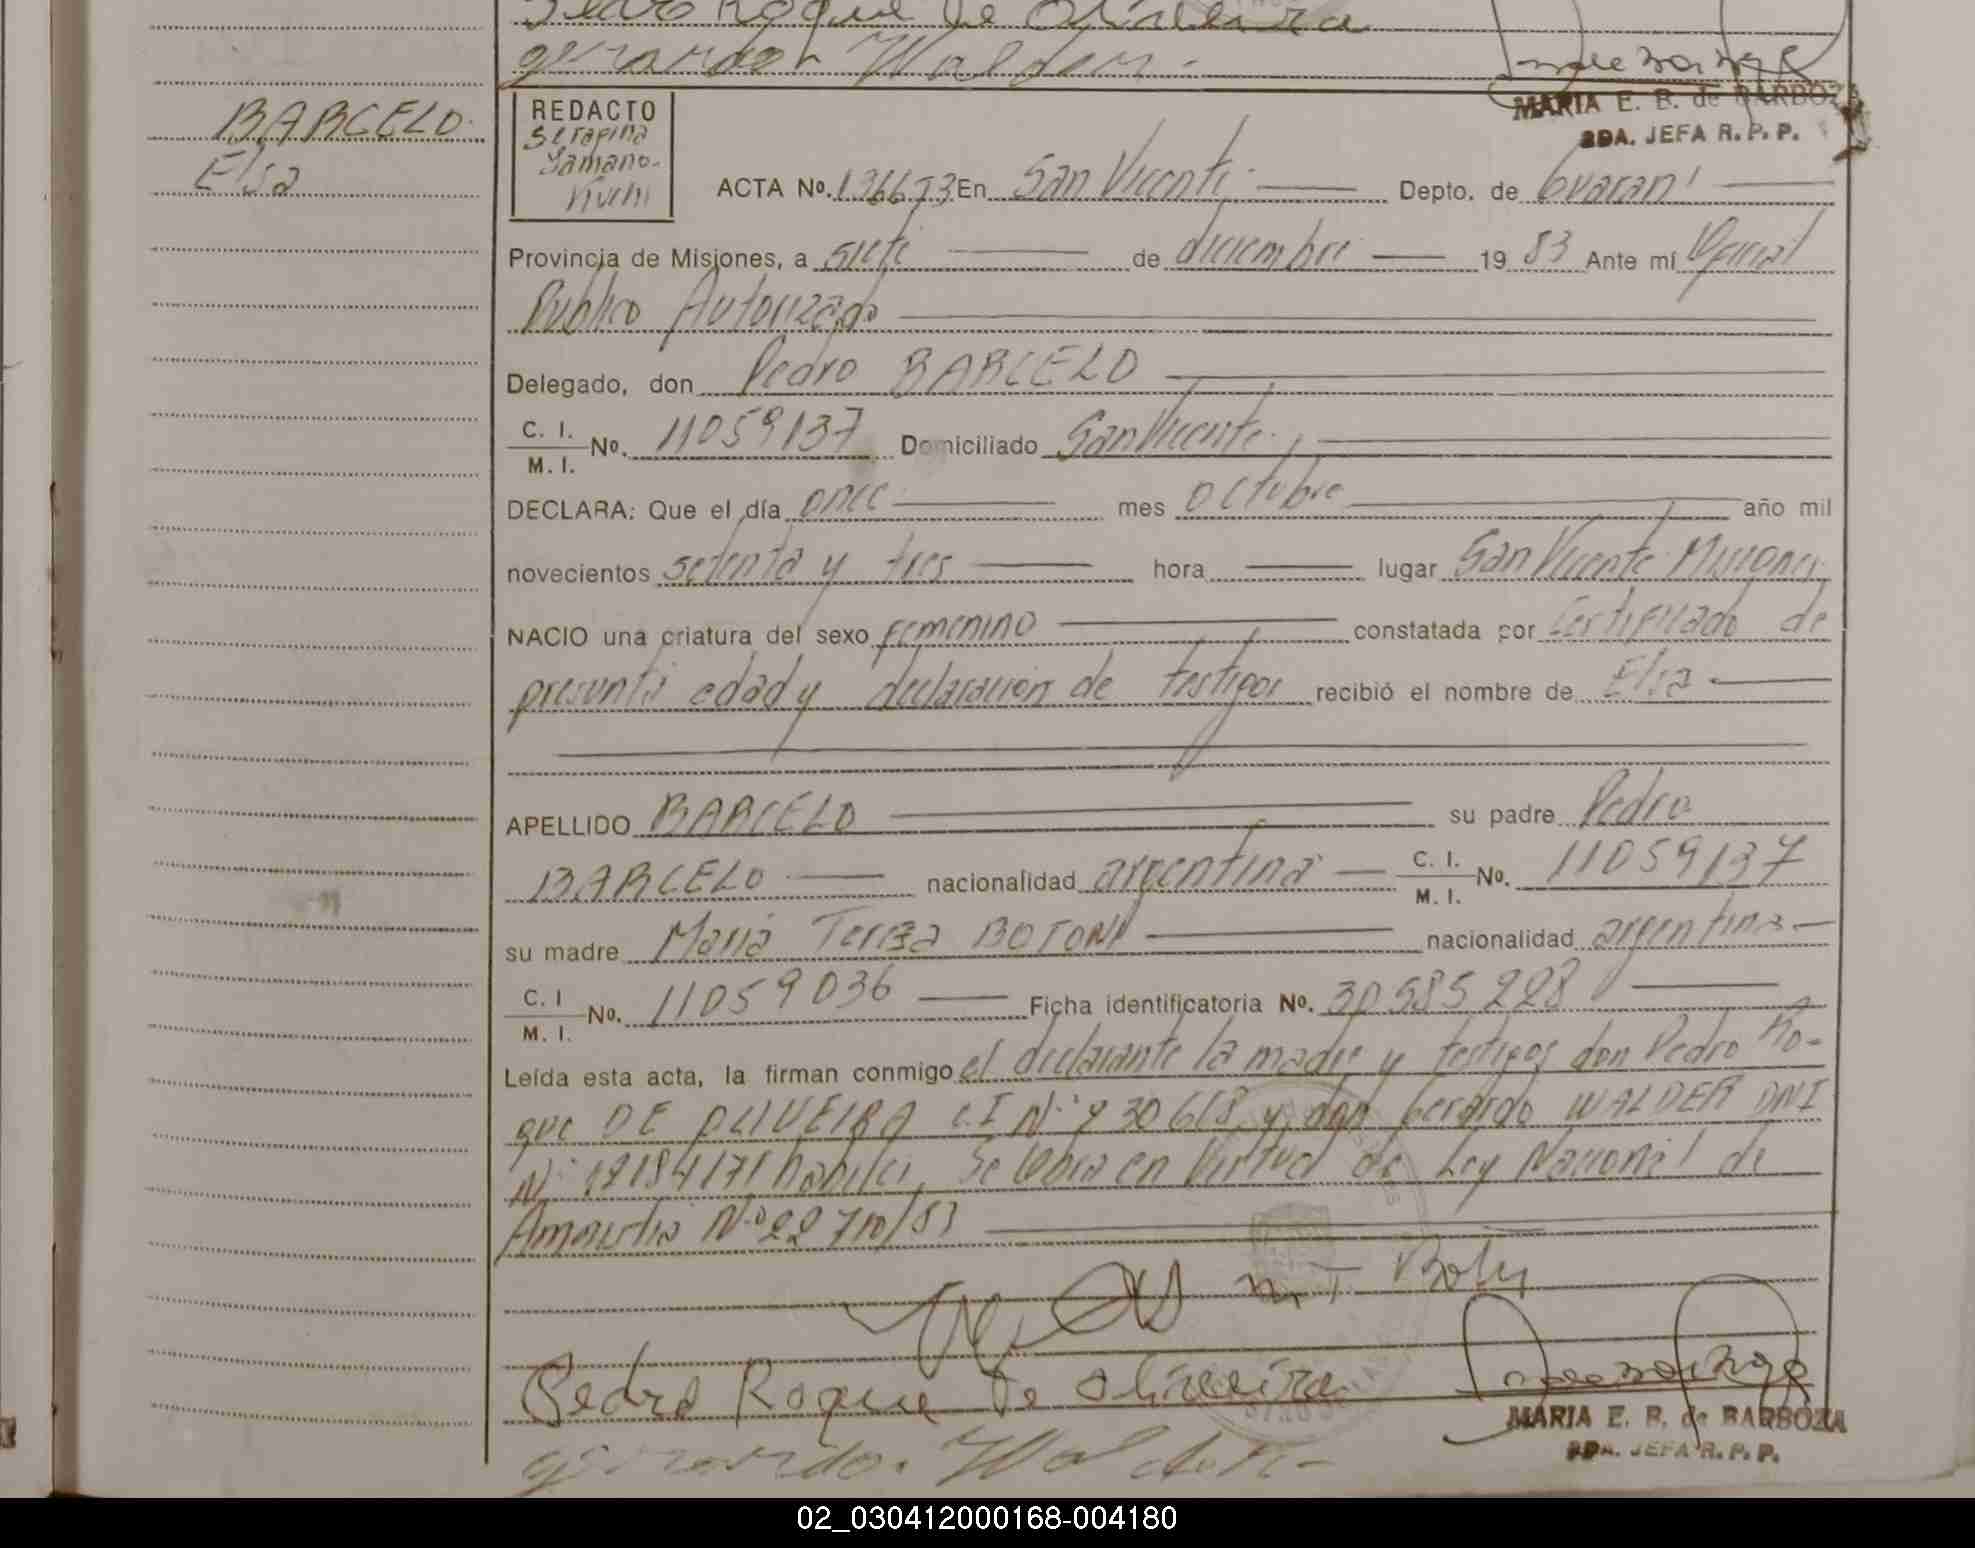 Pedro Roque De Oliveira
gerardo Walder.
MARIA E. B. de BARBOZA
2DA. JEFA R. P. P.
BARCELO
Elsa
REDACTO
Serafina
ACTA No. 136673 En San Vicente Depto. de Guaraní
Provincia de Misiones, a siete de diciembre 19 83 Ante mí Oficial
Publico Autorizado
Delegado, don Pedro BARCELO
C. I.
M. I. No. 11059137 Domiciliado San Vicente
DECLARA: Que el día once mes octubre año mil
novecientos setenta y tres hora lugar San Vicente Misiones
NACIO una criatura del sexo femenino constatada por Certificado de
presunta edad y declaración de testigos recibió el nombre de Elsa
APELLIDO BARCELO su padre Pedro
BARCELO nacionalidad argentina C. I.
M. I. No. 11059137
su madre Maria Tereza BOTONI nacionalidad argentina
C. I
M. I. No. 11059036 Ficha identificatoria No. 30585228
Leída esta acta, la firman conmigo el declarante la madre y testigos don Pedro Ro-
que DE OLIVEIRA C.I N° 930618 y don Gerardo WALDER DNI
N° 12184171 habiles, Se labra en Virtud de Ley Nacional de
Amnistia N° 22710/83
Pedro Roque De Oliveira
gerardo. Walder
MARIA E. B. de BARBOZA
2DA. JEFA R. P. P.
02_030412000168-004180